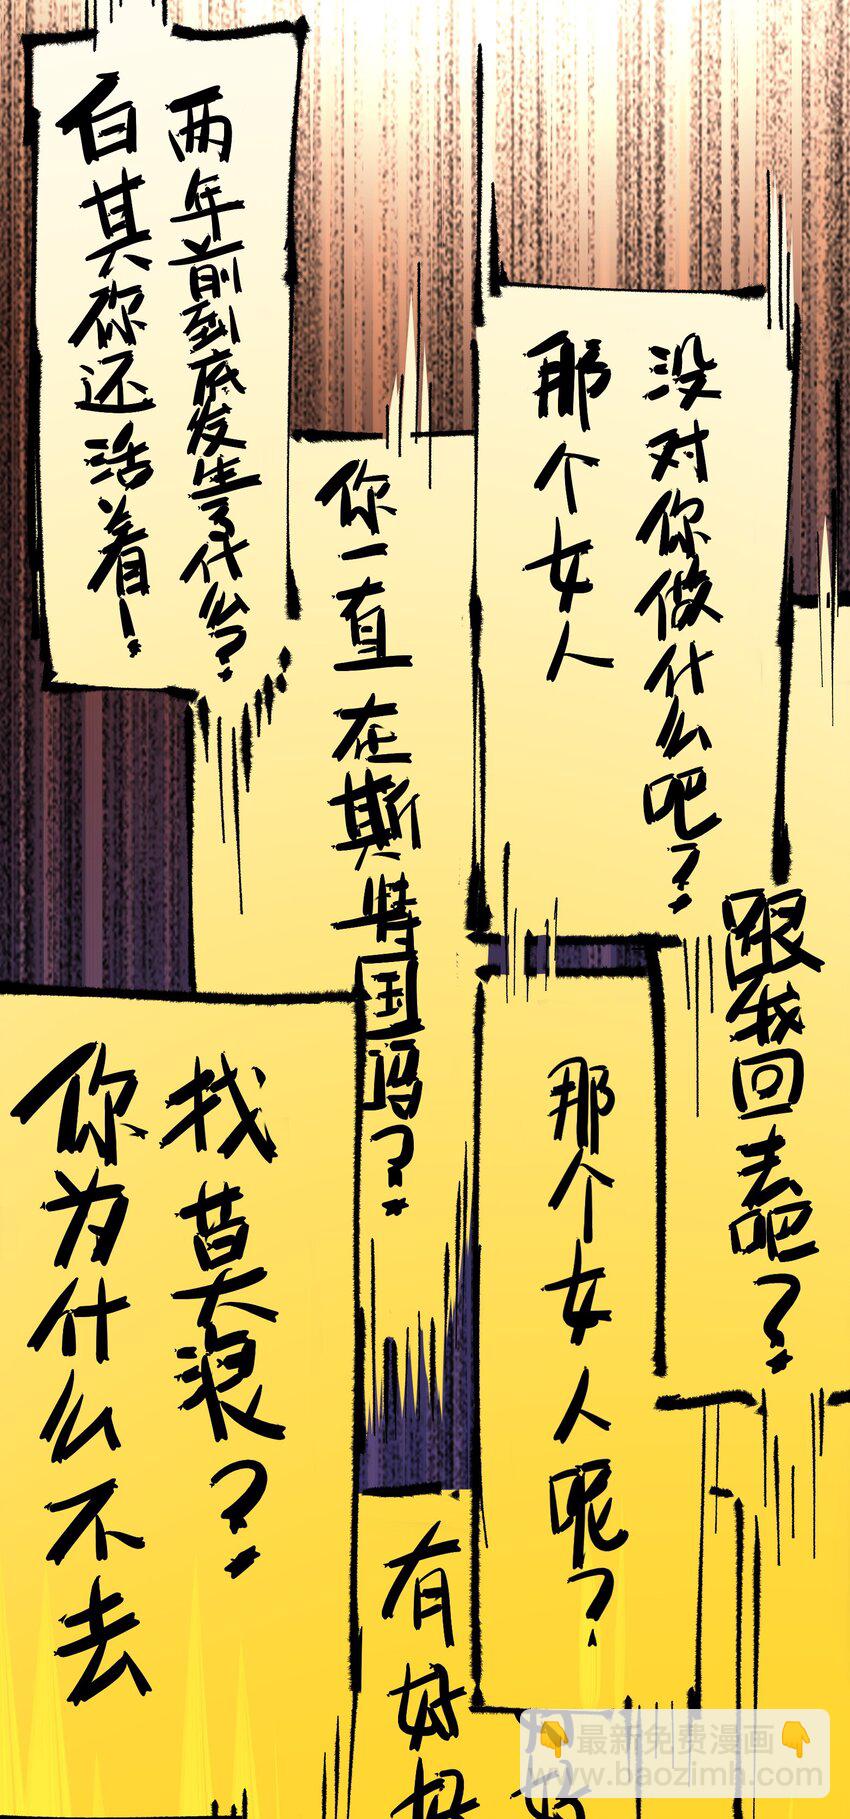 白其你还活着！
两年前到底发生了什么？
那个女人
没对你做什么吧？
你一直在斯特国吗？
跟我回去吧？
你为什么不去
找莫浪？
那个女人呢？
有好
👇最新免费漫画👇
www.baozimh.com